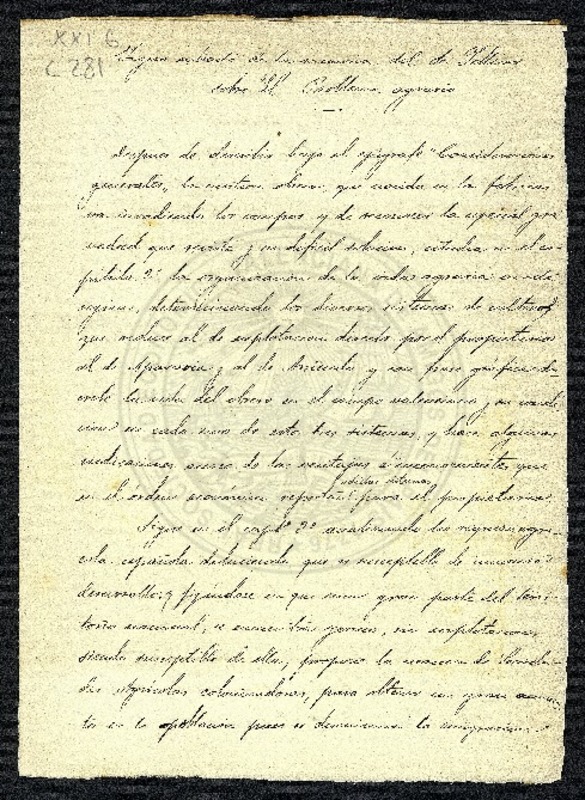 XXI G
C 281
Ligero extracto de la memoria del Sr.
sobre "El Problema agrario
Despues de describir bajo el epígrafe "Consideraciones
generales, la cuestion obrera, que nacida en la fabricas
va invadiendo los campos y de reconocer la especial gra
vedad que reviste y su dificil solucion, estudia en el ca
pitulo 2º la organizacion de la vida agraria en esta
region, determinando los diversos sistemas de cultivo,
que reduce al de explotacion directa por el propietario
al de Aparceria y al de Arriendo y con frase gráfica des
cribe la vida del obrero en el campo valenciano y su condi
cion en cada uno de estos tres sistemas, y hace algunas
indicaciones acerca de las ventajas é inconvenientes que
dichos sistemas
en el órden económico reportan para el propietario.
Sigue en el capº 3º examinando la region agri
cola española deduciendo que es susceptible de inmenso
desarrollo; y fijándose en que una gran parte del terri
torio nacional, se encuentra yermo, sin explotacion,
siendo susceptible de ella, propone la creacion de Socieda
des Agricolas colonizadoras, para obtener un gran aumen
to en la poblacion pues se disminuiria la emigracion